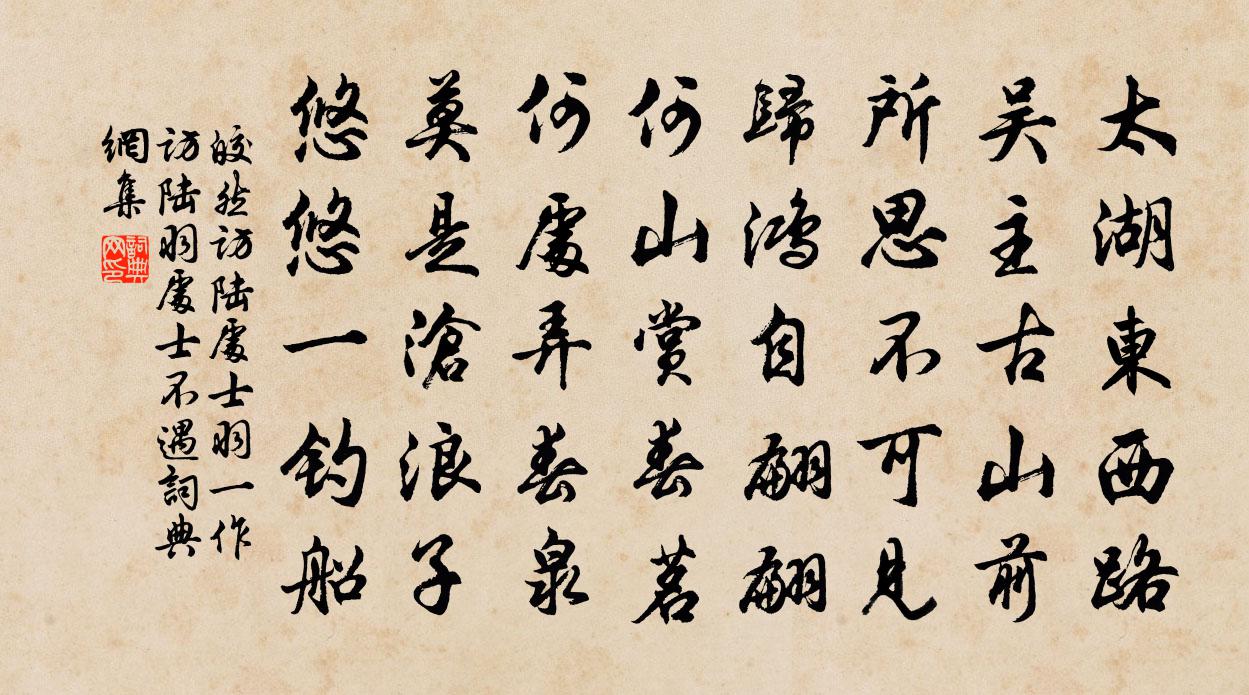 太湖東西路
吴主古山前
所思不可見
歸鴻自翩翩
何山賞春茗
何處弄春泉
莫是滄浪子
悠悠一钓船
皎然访陆處士羽一作
访陆羽處士不遇詞典
網集
詞典
网印